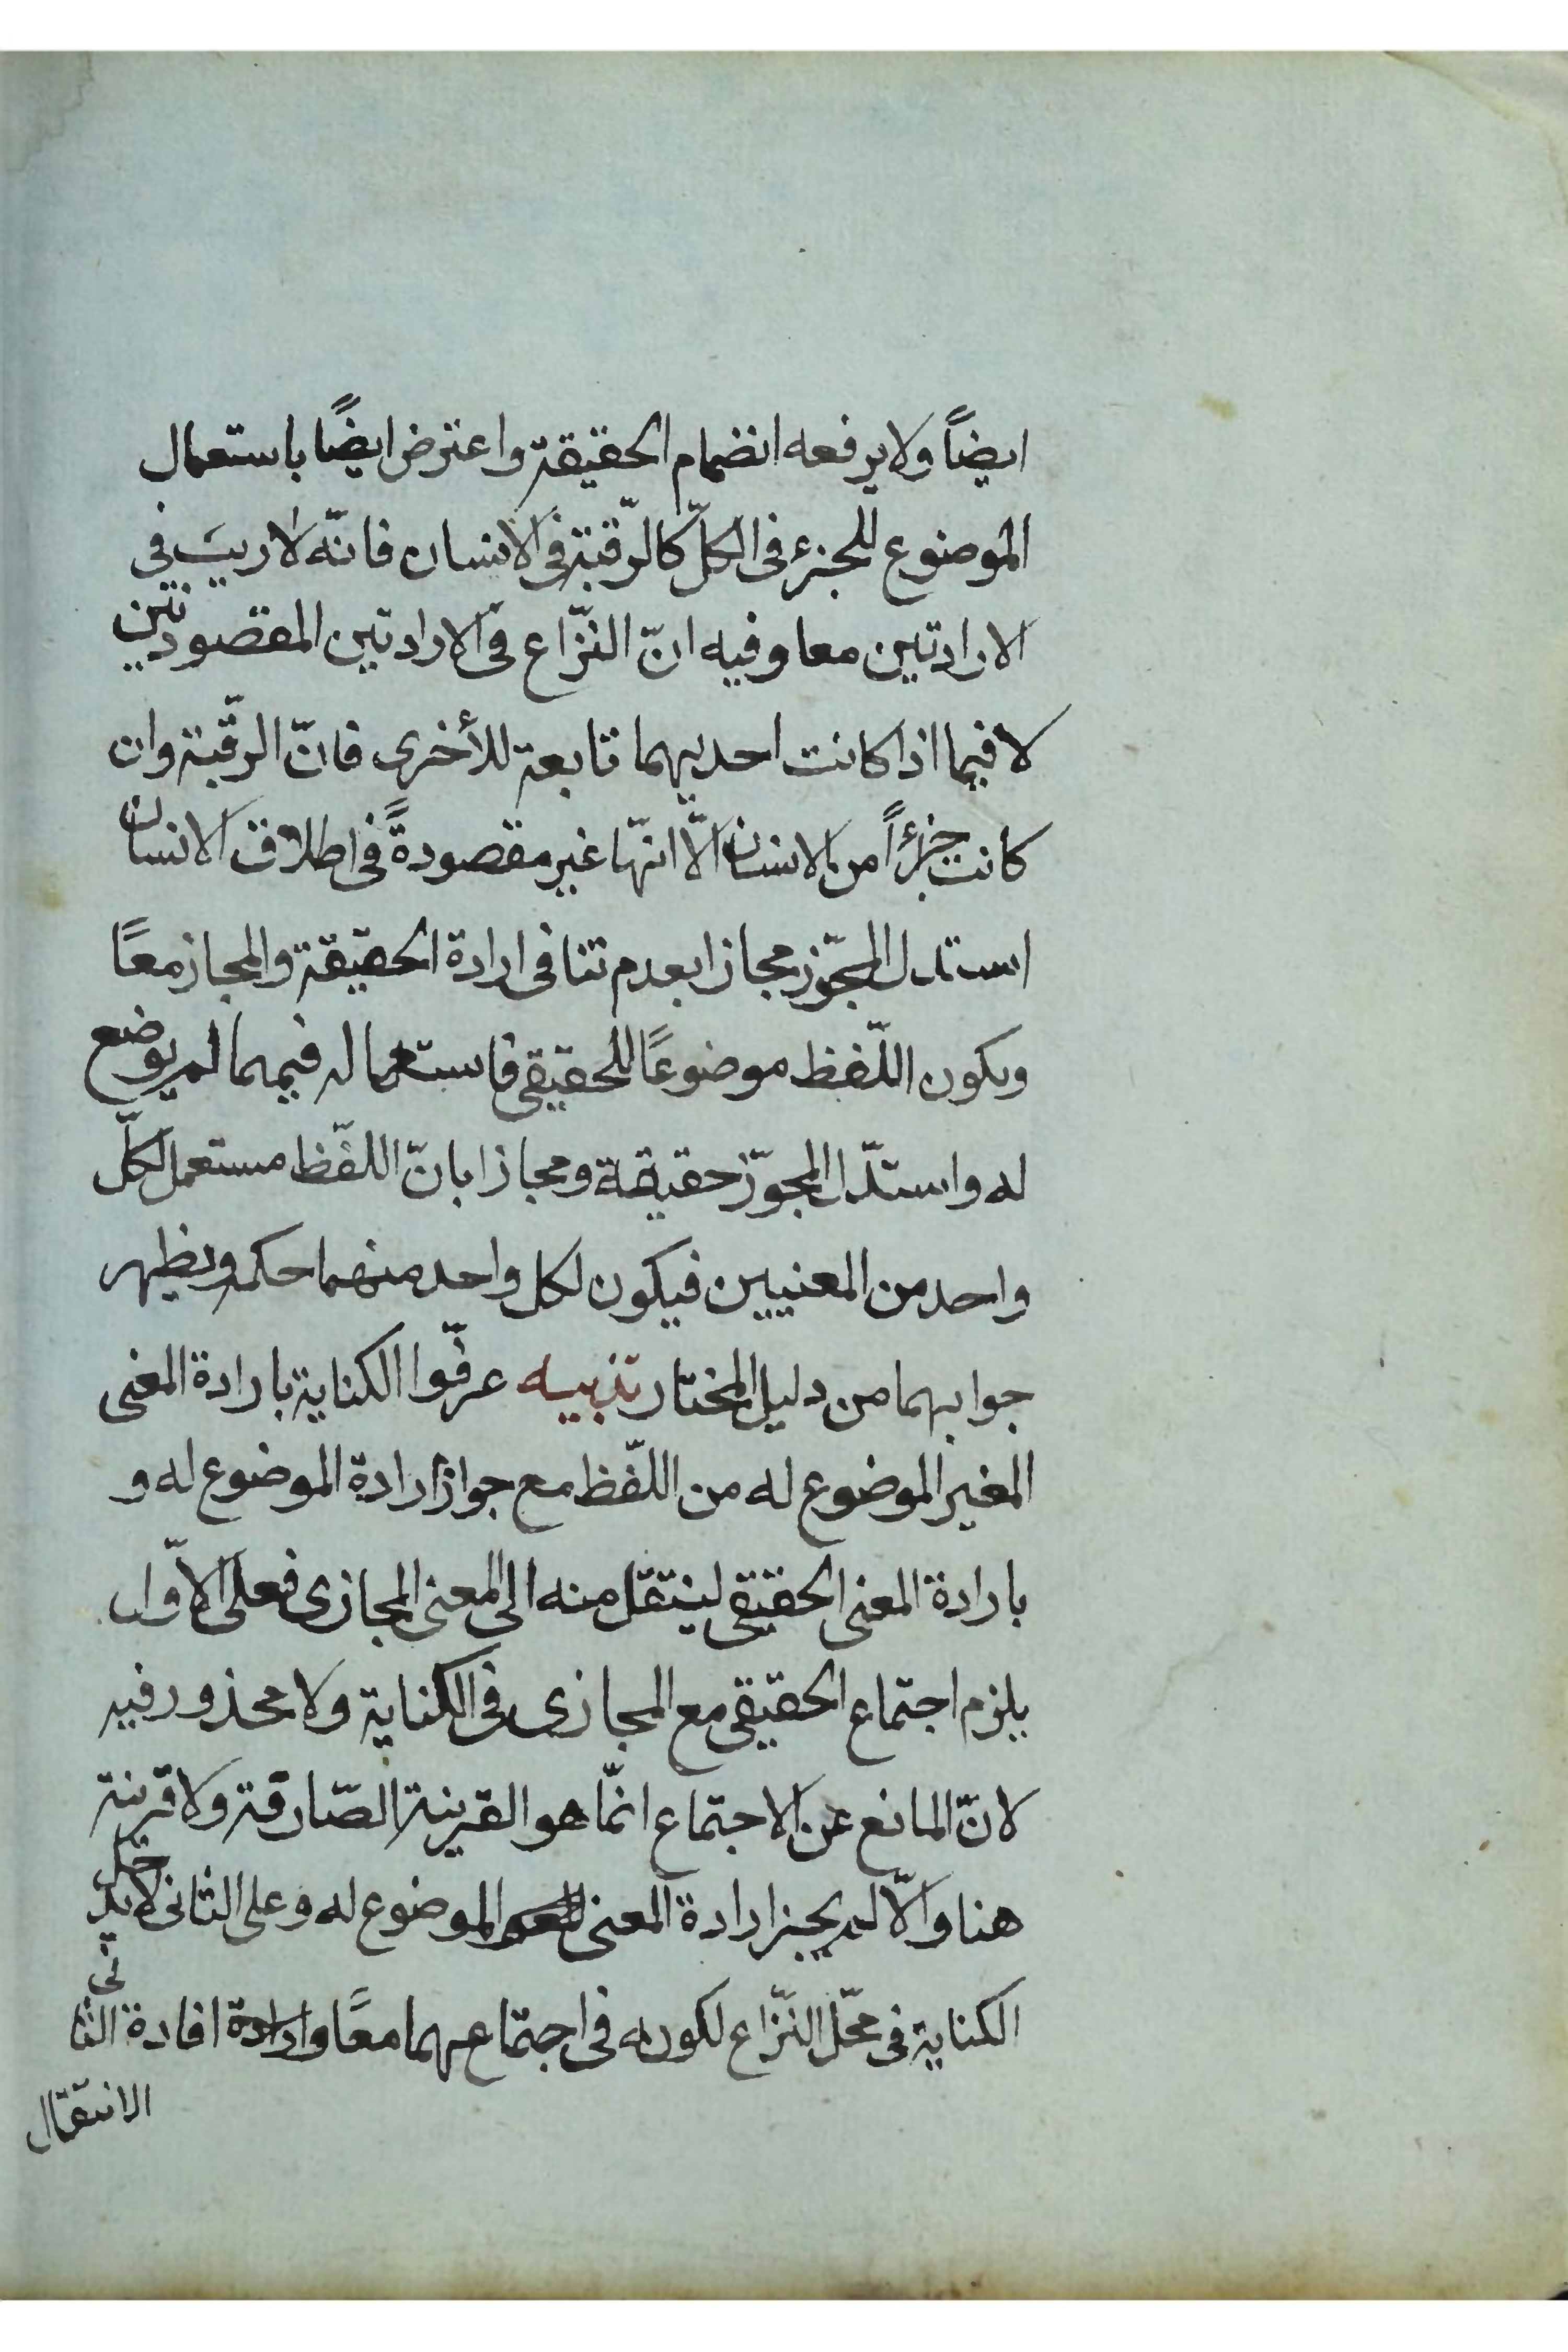 ايضاً ولا يرفعه انضمام الحقيقة واعترض ايضًا باستعمال
الموضوع للجزء فى الكلّ كالرّقبة فى الانسان فانّه لا ريبَ فى
الارادتين معا وفيه انّ النّزاع فى الارادتين المقصودتين
لا فيما اذا كانت احديهما تابعة للأخرى فانّ الرقّبة وان
كانت جزءاً من الانسان الّا انّها غير مقصودةً فى اطلاق الانسان
استدل المجّوز مجازا بعدم تنافى ارادة الحقيقة والمجاز معًا
ويكون اللّفظ موضوعًا للحقيقى فاستعماله فيهما لم يوضع
له واستدّل المجوّز حقيقة ومجازا بانّ اللفّظ مستعمل لكلّ
واحد من المعنيين فيكون لكل واحد منهما حكمه ويظهر
جوابهما من دليل المختار تذبيه عرفّوا الكناية بارادة المعنى
المغير الموضوع له من اللفّظ مع جواز ارادة الموضوع له و
بارادة المعنى الحقيقى لينتقل منه الى المعنى المجازى فعلى الاوّل
يلزم اجتماع الحقيقى مع المجازى فى الكناية ولا محذور فيه
لانّ المانع عن الاجتماع انمّا هو القرينة الصّارفة ولا قرينة
هنا والّا لم يجز ارادة المعنى الموضوع له وعلى الثانى لا يدخل
الكناية فى محّل النّزاع لكونه فى اجتماعهما معًا وارادة افادة الثانى
الانتقال